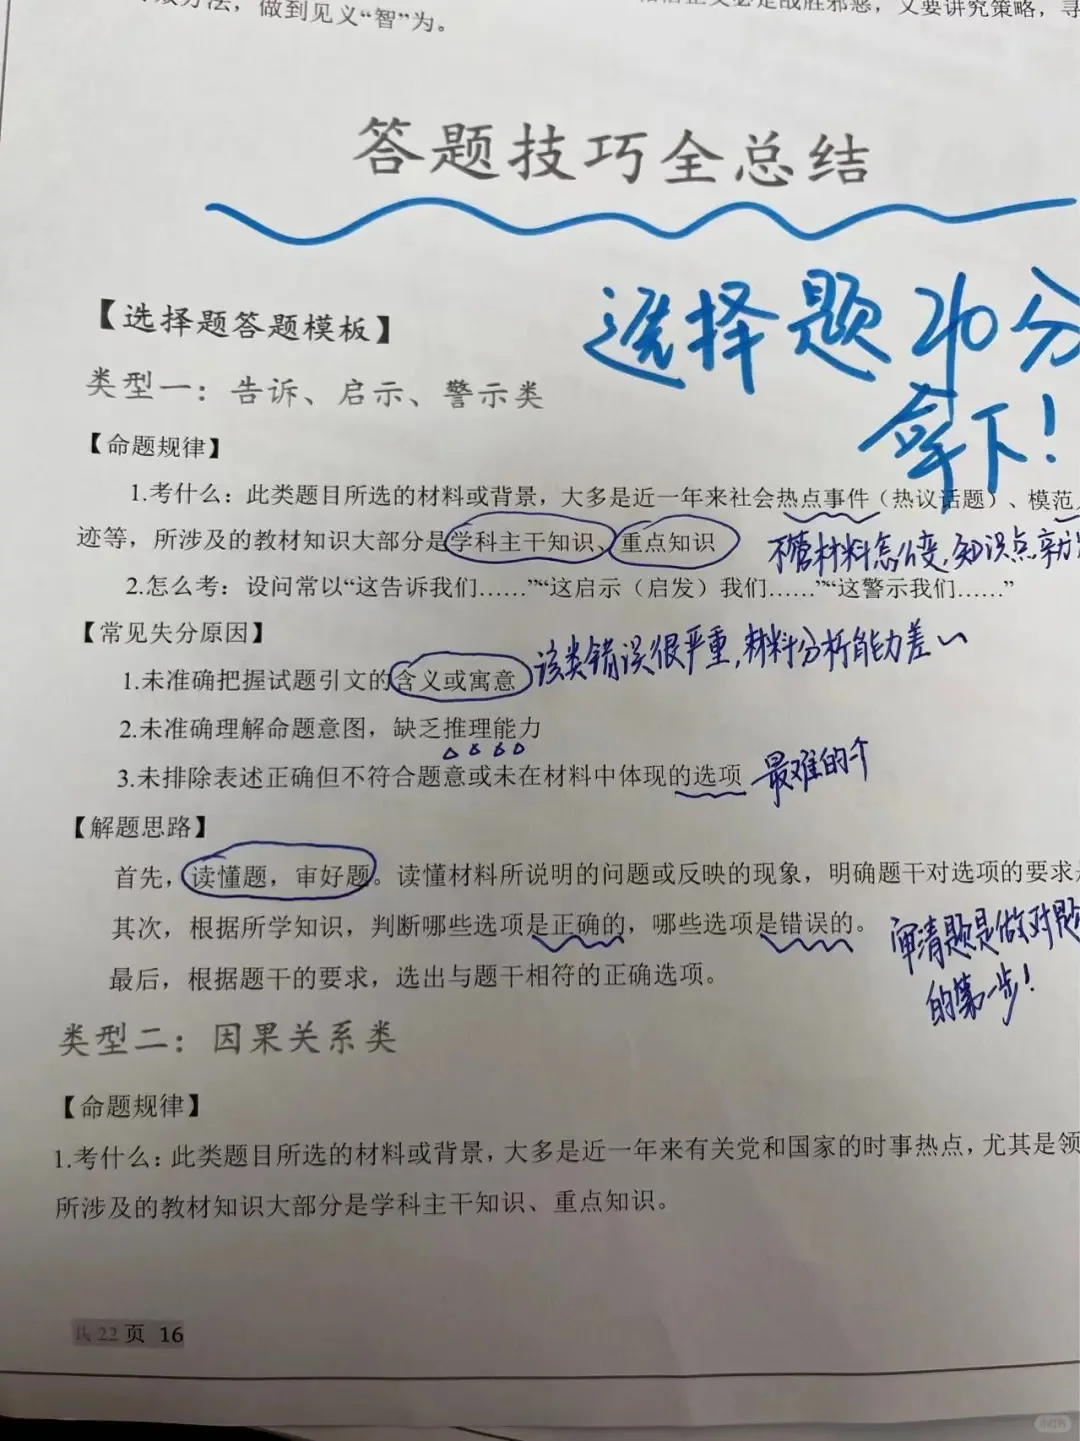 方法，做到见义“智”为。
战胜邪恶，又要讲究策略，寻
答题技巧全总结
选择题20分
拿下！
【选择题答题模板】
类型一：告诉、启示、警示类
【命题规律】
1.考什么：此类题目所选的材料或背景，大多是近一年来社会热点事件（热议话题）、模范
迹等，所涉及的教材知识大部分是学科主干知识、重点知识
不管材料怎么变，知识点
2.怎么考：设问常以“这告诉我们……”“这启示（启发）我们……”“这警示我们……”
【常见失分原因】
该类错误很严重，材料分析能力差
1.未准确把握试题引文的含义或寓意
2.未准确理解命题意图，缺乏推理能力
3.未排除表述正确但不符合题意或未在材料中体现的选项
最难的个
【解题思路】
首先，读懂题，审好题。读懂材料所说明的问题或反映的现象，明确题干对选项的要求
其次，根据所学知识，判断哪些选项是正确的，哪些选项是错误的。
审清题是做对题
的第一步！
最后，根据题干的要求，选出与题干相符的正确选项。
类型二：因果关系类
【命题规律】
1.考什么：此类题目所选的材料或背景，大多是近一年来有关党和国家的时事热点，尤其是领
所涉及的教材知识大部分是学科主干知识、重点知识。
共 22 页 16